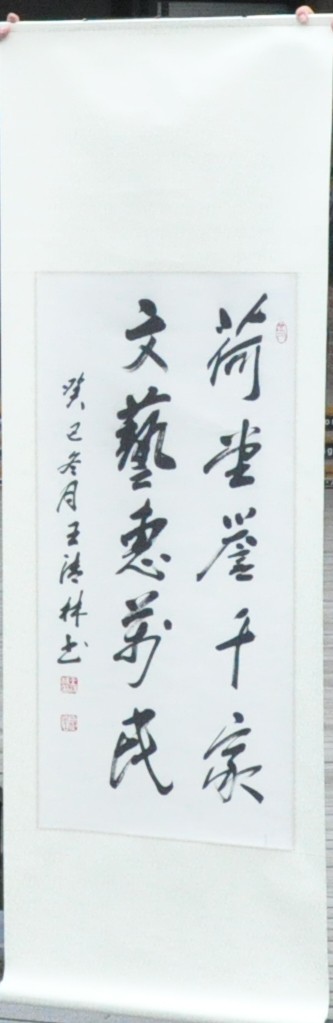 荷堂誉千家
文藝惠萬民
癸巳冬月王清林书